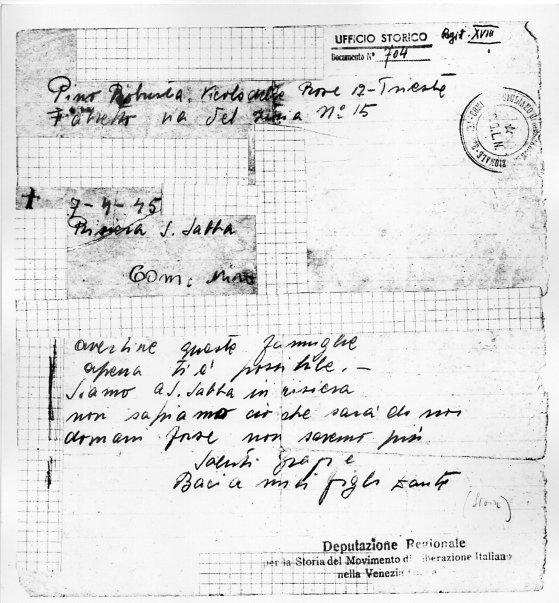 UFFICIO STORICO
Regist. XVIII
Documento N° 704
Pino Robusta, Vicolo delle Rose 12 - Trieste
via del N° 15
7-4-45
Risiera S. Sabba
Com: Mino
avertire queste famiglie
apena ti è possibile. —
Siamo a S. Sabba in risiera
non sapiamo ciò che sarà di noi
domani forse non saremo più
Saluti grazie
Bacia miei figli tante
Deputazione Regionale
per la Storia del Movimento di Liberazione Italiano
nella Venezia